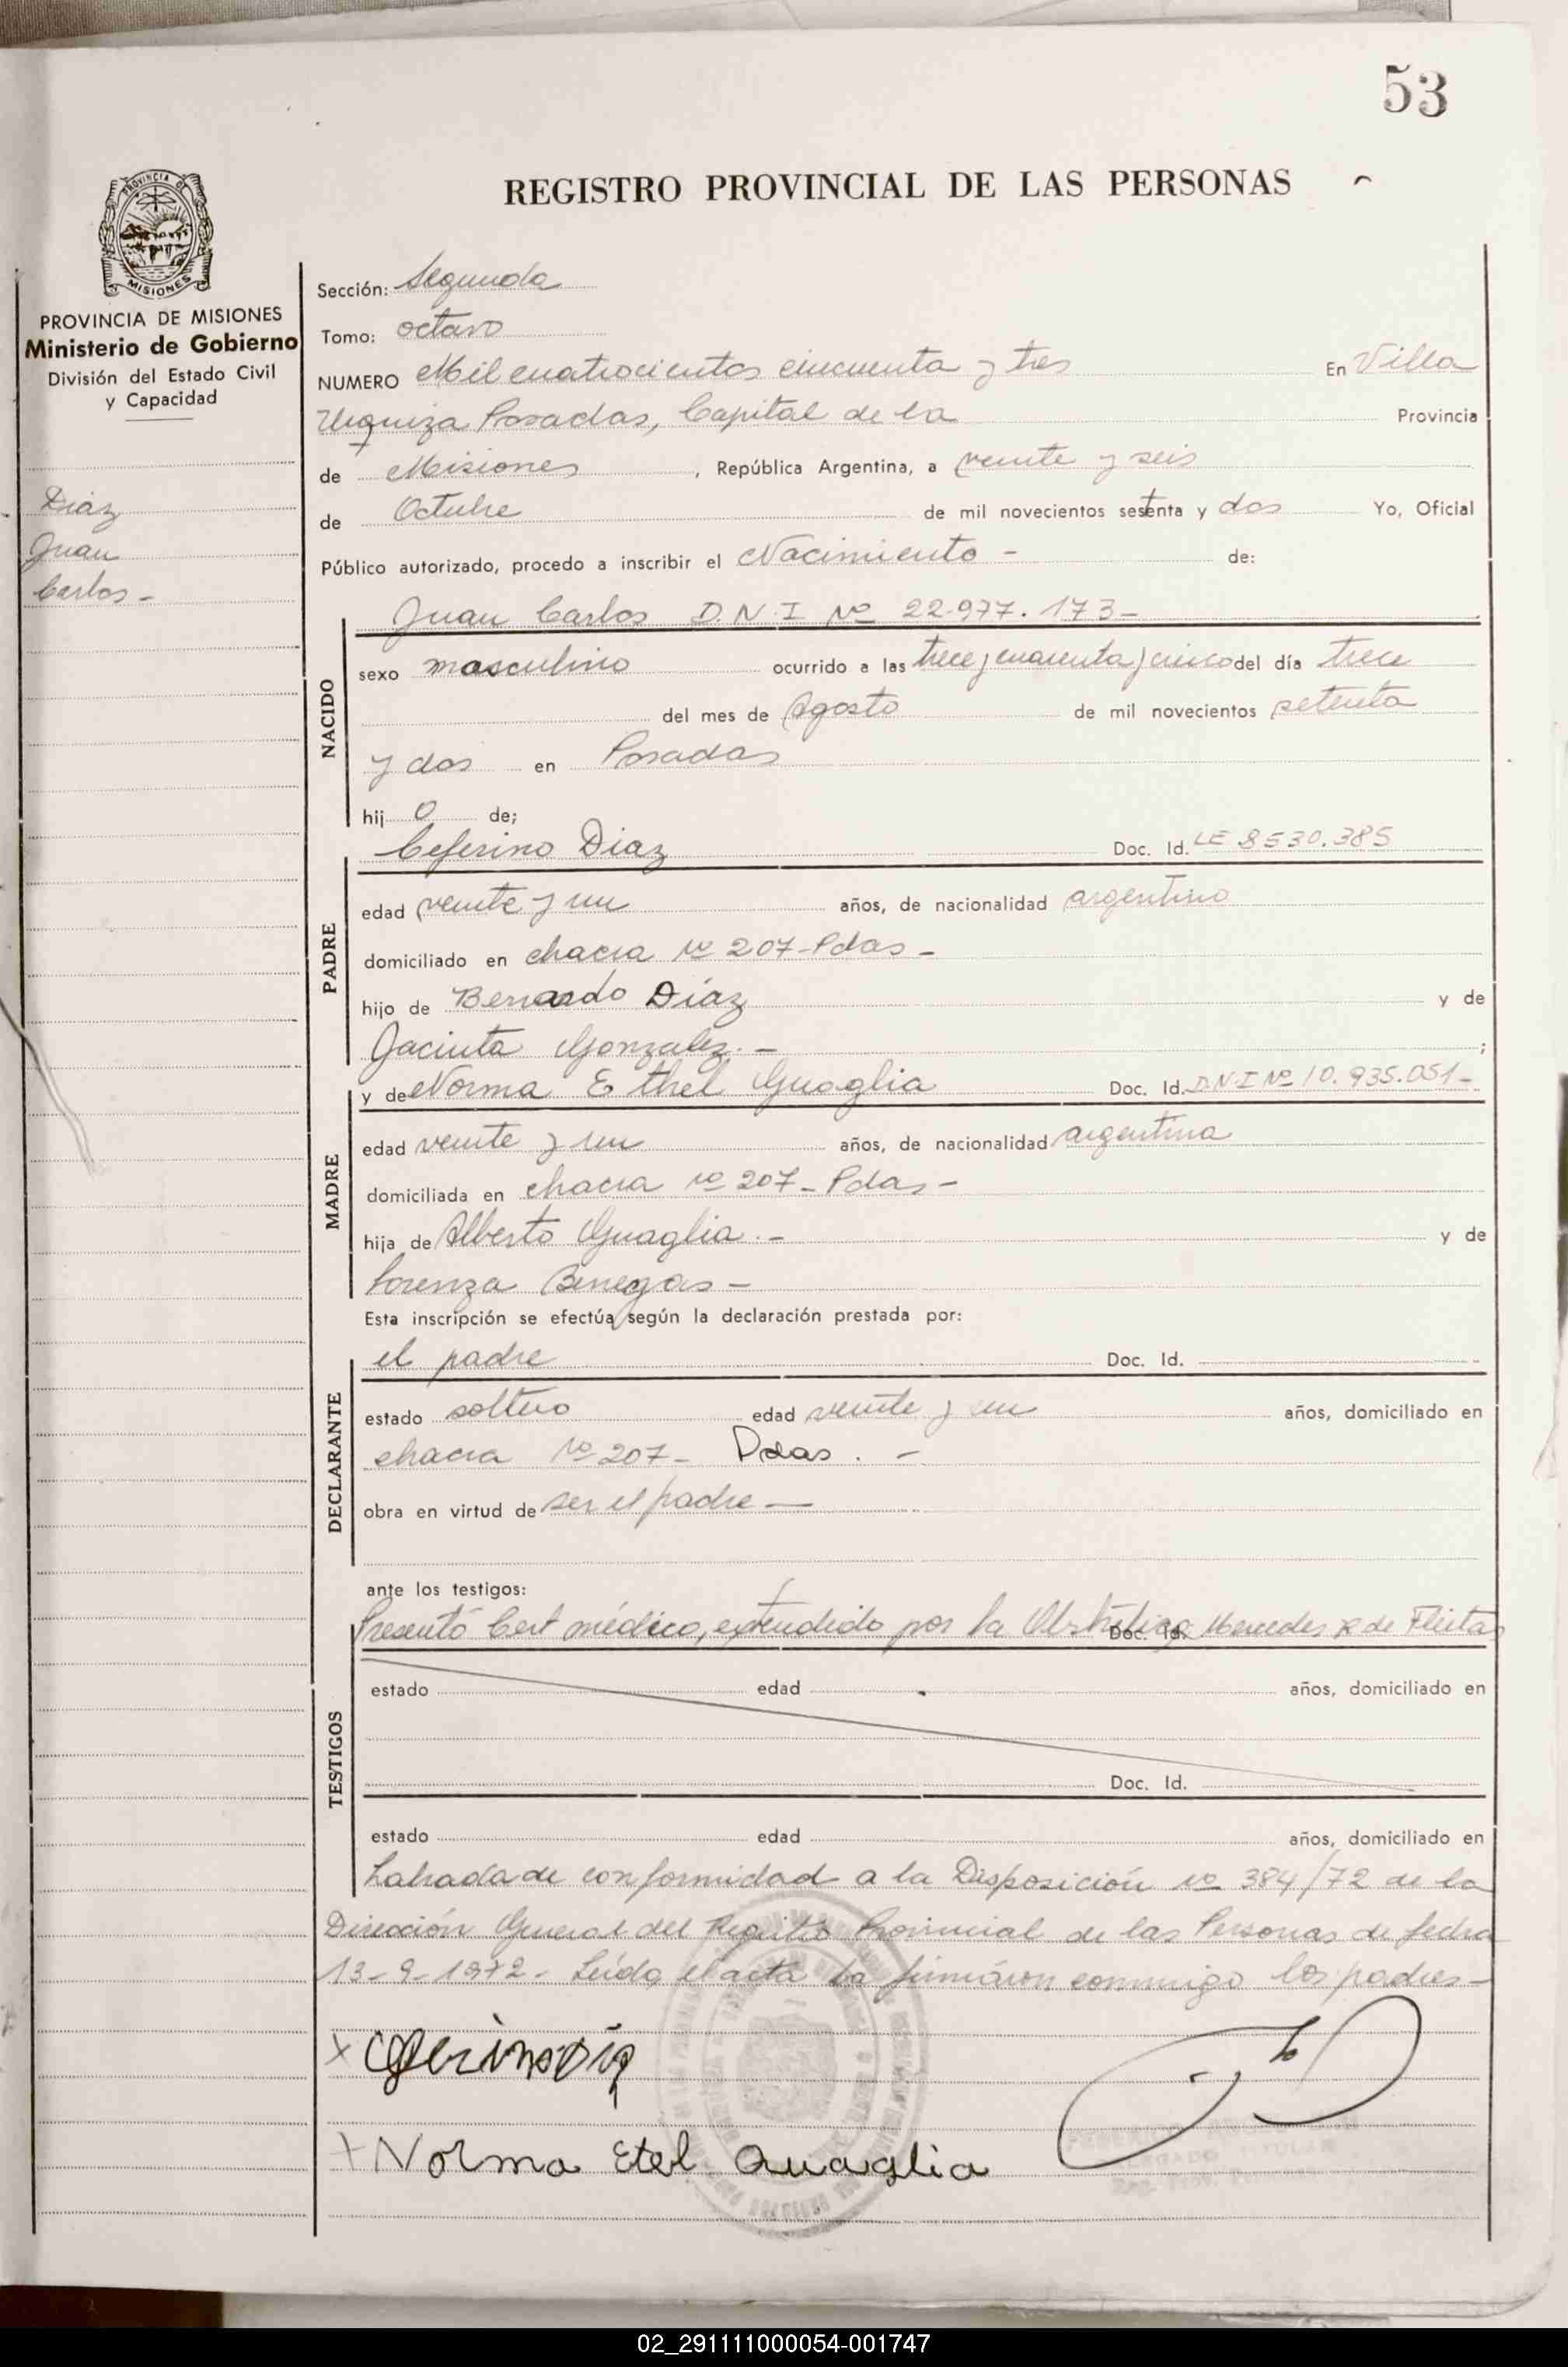 53
REGISTRO PROVINCIAL DE LAS PERSONAS
PROVINCIA DE
MISIONES
PROVINCIA DE MISIONES
Ministerio de Gobierno
División del Estado Civil
y Capacidad
Diaz
Juan
Carlos -
Sección: Segunda
Tomo: octavo
NUMERO Mil cuatrocientos cincuenta y tres En Villa
Urquiza Posadas, Capital de la Provincia
de Misiones , República Argentina, a veinte y seis
de Octubre de mil novecientos setenta y dos Yo, Oficial
Público autorizado, procedo a inscribir el Nacimiento - de:
Juan Carlos D.N.I Nº 22.977.173-
NACIDO
sexo masculino ocurrido a las trece y cuarenta y cinco del día trece
del mes de Agosto de mil novecientos setenta
y dos en Posadas
hij o de;
PADRE
Ceferino Diaz Doc. Id. LE 8530.385
edad veinte y un años, de nacionalidad argentino
domiciliado en chacra Nº 207-Pdas -
hijo de Bernardo Díaz y de
Jacinta Gonzalez. - ;
MADRE
y de Norma Ethel Guaglia Doc. Id. D.N.I Nº 10.935.051-
edad veinte y un años, de nacionalidad argentina
domiciliada en chacra nº 207- Pdas -
hija de Alberto Guaglia . - y de
Lorenza Benegas -
Esta inscripción se efectúa según la declaración prestada por:
DECLARANTE
el padre Doc. Id.
estado soltero edad veinte y un años, domiciliado en
chacra Nº 207- Pdas . -
obra en virtud de ser el padre -
ante los testigos:
TESTIGOS
Presentó Cert médico, extendido por la Obstétrica Mercedes R de Fleitas
Doc. Id.
estado edad años, domiciliado en
Doc. Id.
estado edad años, domiciliado en
Labrada de conformidad a la Disposición nº 384/72 de la
Dirección General del Registro Provincial de las Personas de fecha
13-9-1972- Leída el acta la firmaron conmigo los padres -
x
x Norma Etel Quaglia
02_291111000054-001747